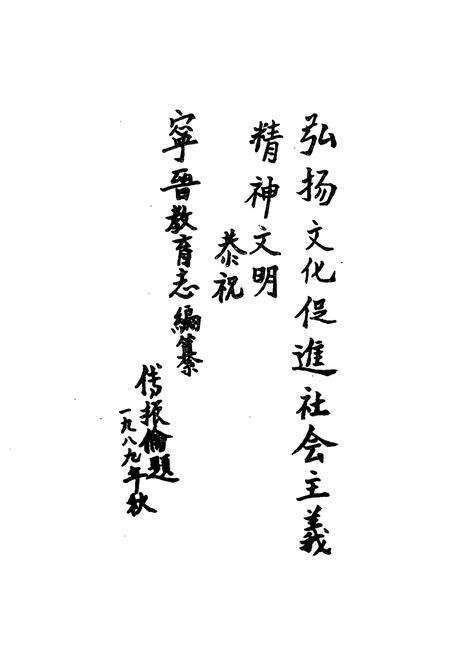 弘扬文化促進社会主義
精神文明
恭祝
寧晉教育志編纂
傅振倫題
一九八九年秋